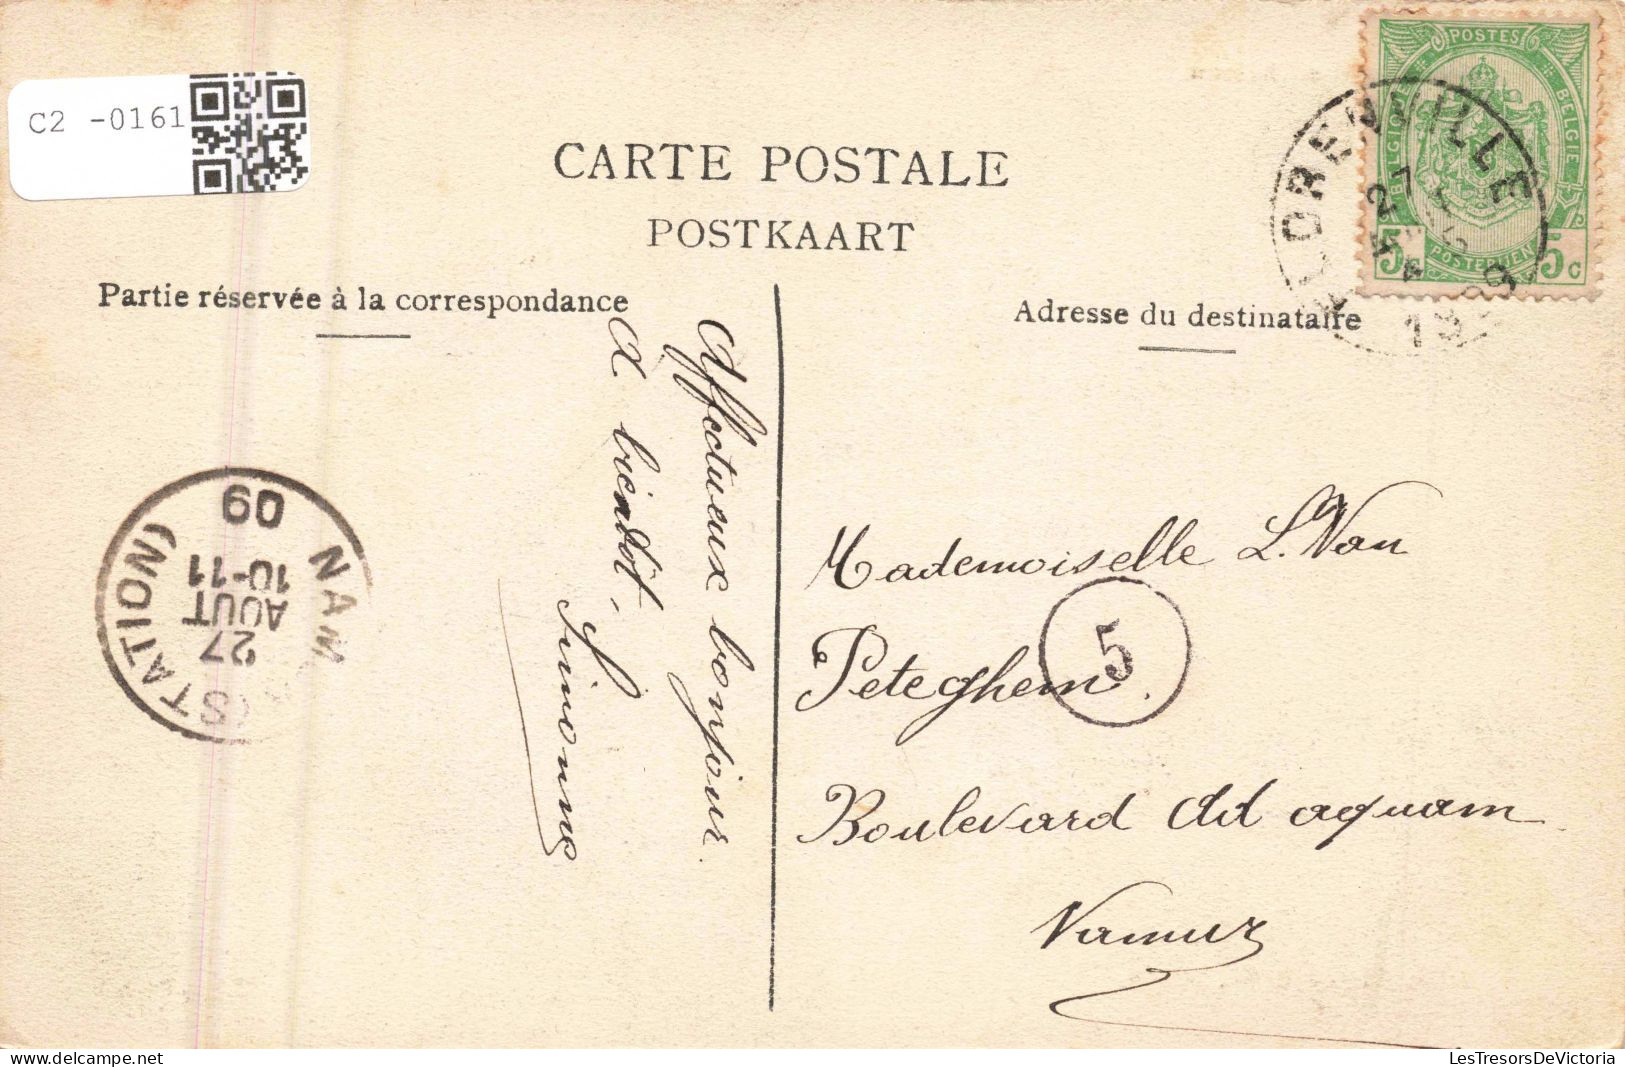 C2 -0161
CARTE POSTALE
POSTKAART
Partie réservée à la correspondance
Adresse du destinataire
POSTES
BELGIQUE
BELGIE
POSTERIJEN
5c
5c
FLORENVILLE
27
1909
Affectueux bonjour.
A bientôt,
Simonne
NAMUR (STATION)
27
AOUT
10-11
09
Mademoiselle L. Van
Peteghem.
5
Boulevard Ad aquam
Namur
LesTresorsDeVictoria